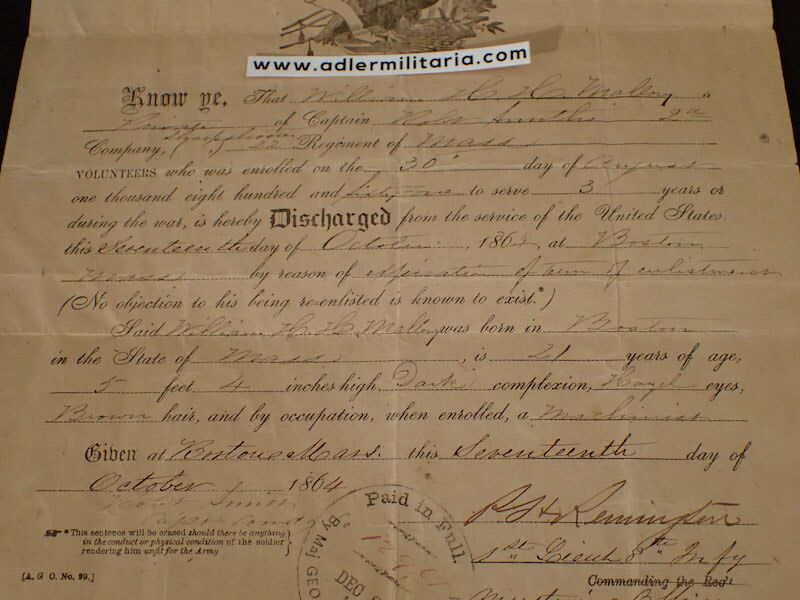 www.adlermilitaria.com
Know ye, That William H. H. Mallory a
Private of Captain Smith 2d
Sharpshooters
Company, ( , ) 22 Regiment of Mass
VOLUNTEERS who was enrolled on the 30 day of August
one thousand eight hundred and Sixty-one to serve 3 years or
during the war, is hereby Discharged from the service of the United States,
this Seventeenth day of October, 1864, at Boston
Mass. by reason of expiration of term of enlistment
(No objection to his being re-enlisted is known to exist.*)
Said William H. H. Mallory was born in Boston
in the State of Mass., is 21 years of age,
5 feet 4 inches high, Dark complexion, Hazel eyes,
Brown hair, and by occupation, when enrolled, a Machinist
Given at Boston Mass. this Seventeenth day of
October 1864
Smith
R. H. Remington
1st Lieut 8th Infy
Commanding the Reg't
* This sentence will be erased should there be anything
in the conduct or physical condition of the soldier
rendering him unfit for the Army
[A. G O. No. 99.]
Paid in Full.
By Maj GEO
DEC